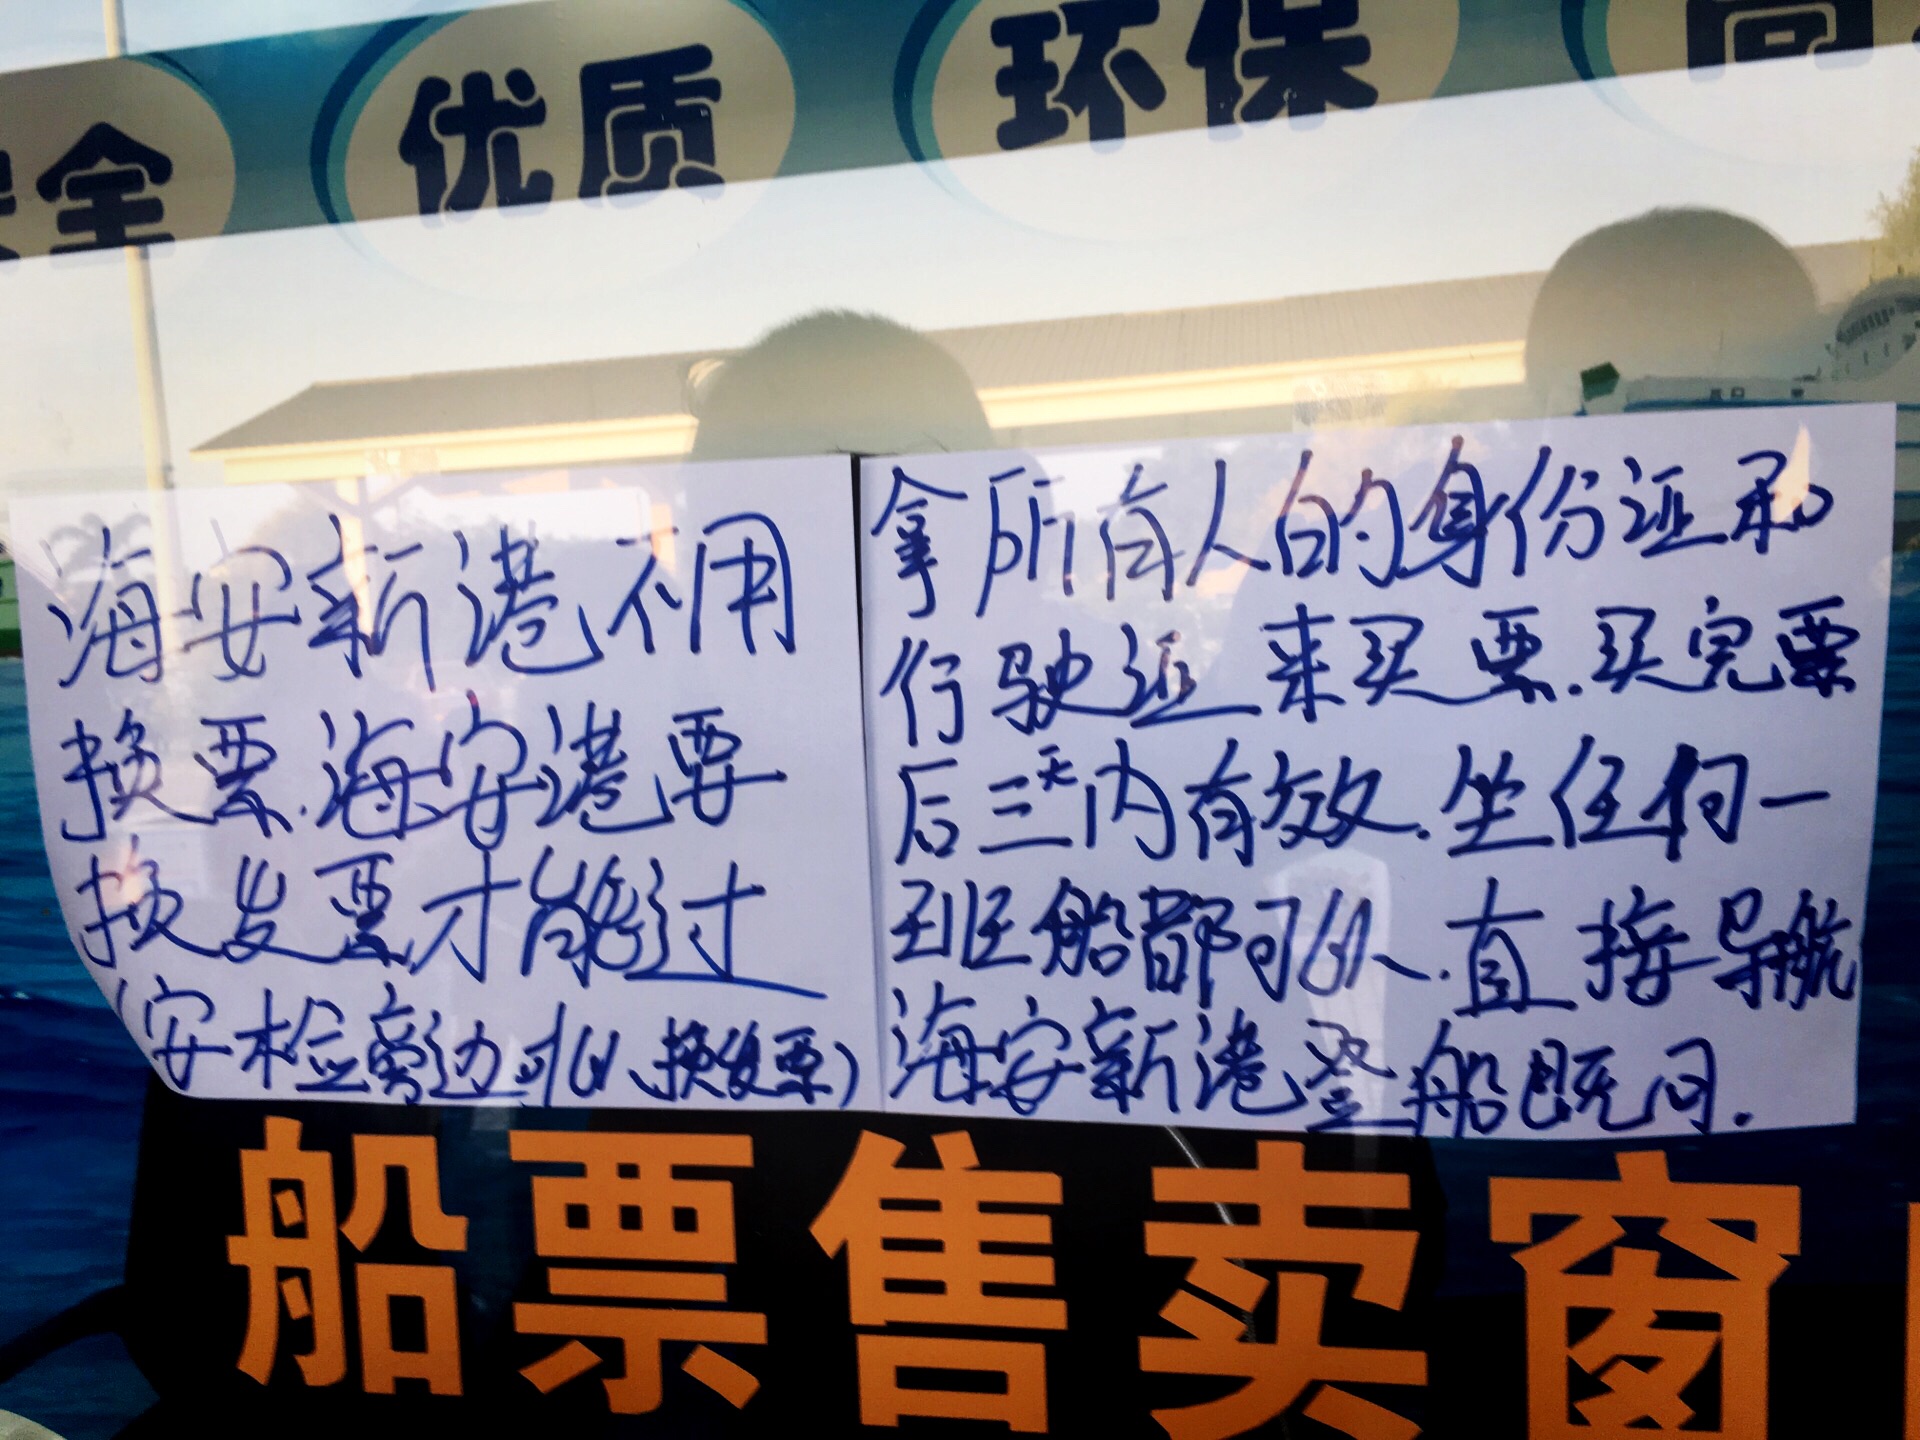 全 优质 环保 高
海安新港不用
换票.海安港要
换发票才能过
(安检旁边可以换发票)
拿所有人的身份证和
行驶证来买票.买完票
后三天内有效.坐任何一
班船都可以.直接导航
海安新港登船既可.
船票售卖窗